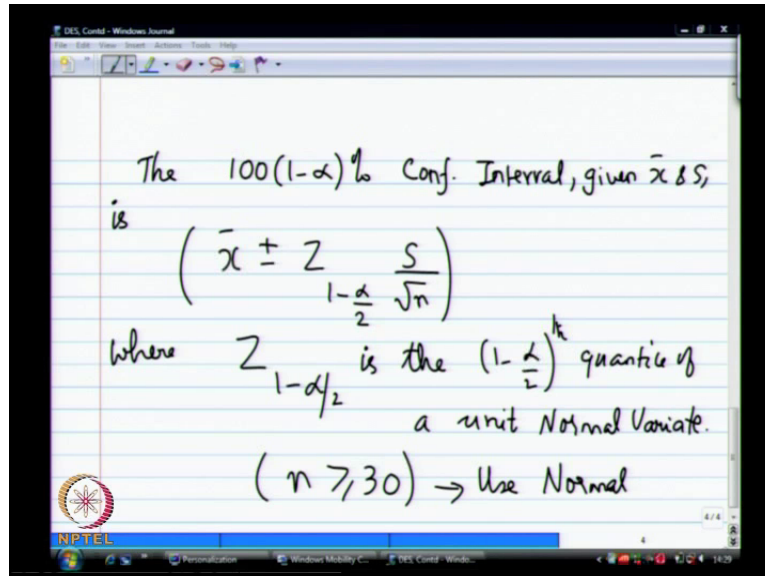 DES, Contd - Windows Journal
File Edit View Insert Actions Tools Help
The 100(1-α)% Conf. Interval, given x̄ & S,
is
( x̄ ± Z_{1-α/2} S/√n )
where Z_{1-α/2} is the (1-α/2)^{th} quantile of
a unit Normal Variate.
(n ≥ 30) → Use Normal
4/4
4
NPTEL
Personalization Windows Mobility C... DES, Contd - Windo... 14:29